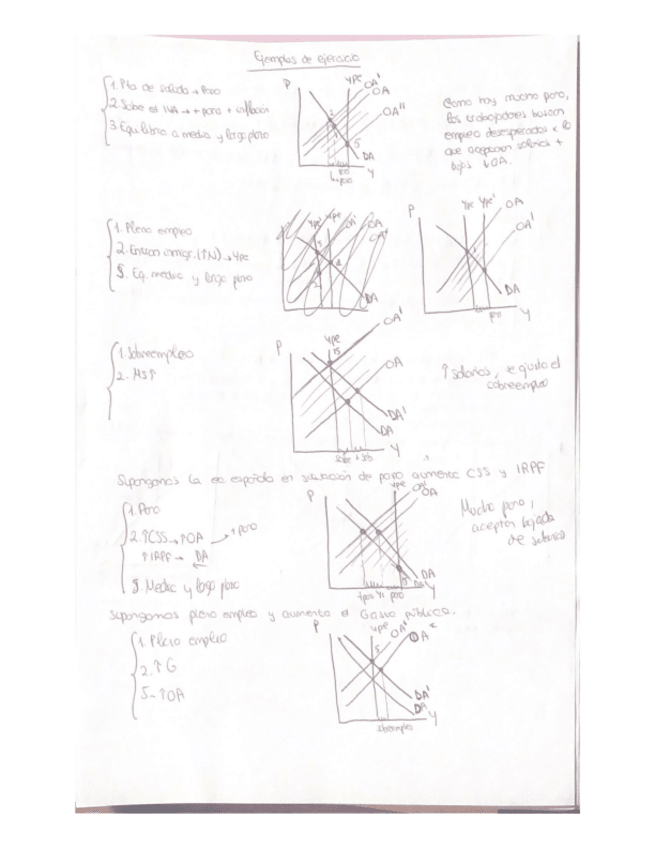 Ejemplos de ejercicio
1. Pto de salida → Paro
2. Sube el IVA → + paro + inflación
3. Equilibrio a medio y largo plazo
P
YPE
OA'
OA
OA''
DA
Y
Como hay mucho paro,
los trabajadores buscan
empleo desesperados x lo
que aceptaran salarios +
bajos ↓OA.
1. Pleno empleo
2. Entran inmigr. (↑N) → YPE
3. Eq. medio y largo plazo
OA
DA
P
YPE YPE'
OA
OA'
DA
paro
Y
1. Sobreempleo
2. MS↑
P
YPE
OA'
OA
DA'
DA
Y
↑ salarios, se ajusta el
sobreempleo
Supongamos la ec española en situación de paro aumenta CSS y IRPF
1. Paro
2. ↑CSS → ↑OA → ↑paro
↑IRPF → DA
3. Medio y largo plazo
P
YPE
OA'
OA
DA
DA'
Y
paro
Mucho paro,
aceptan bajada
de salarios
Supongamos pleno empleo y aumenta el Gasto público.
1. Pleno empleo
2. ↑G
5- ↑OA
P
YPE
OA'
OA
DA'
DA
Y
sobreempleo